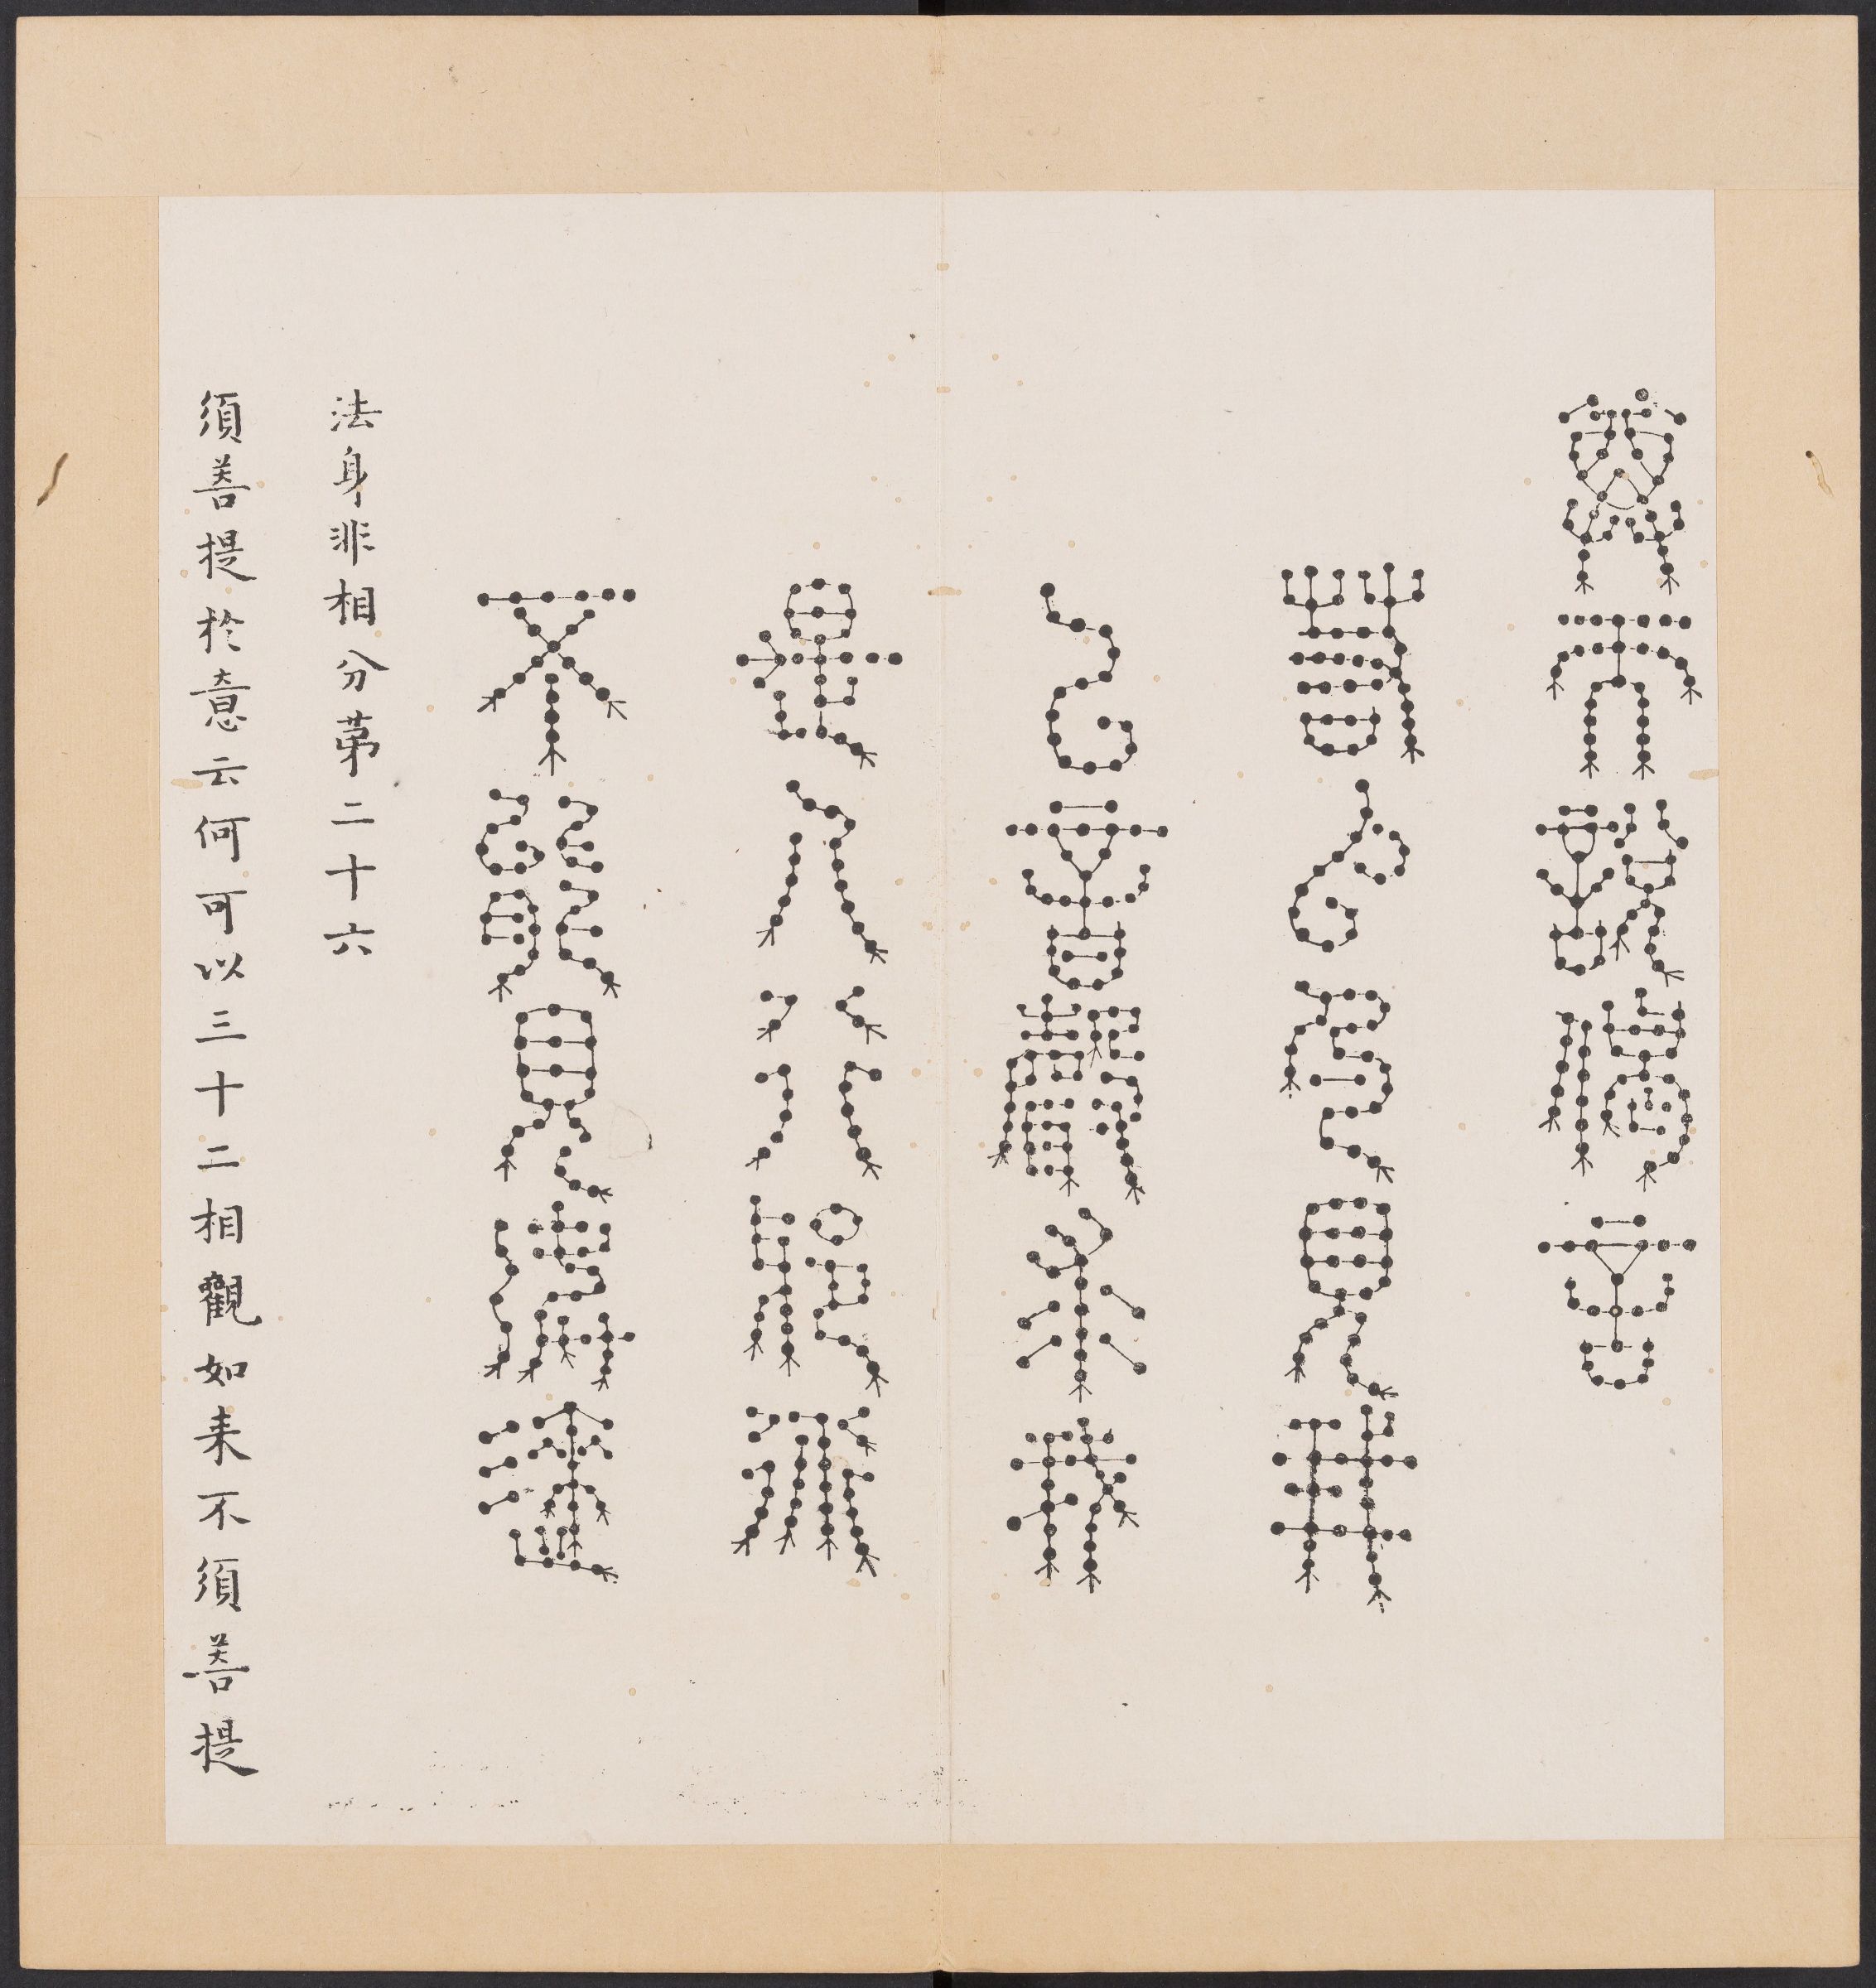 尊而說偈言
若以色見我
以音聲求我
是人行邪道
不能見如來
法身非相分苐二十六
須菩提於意云何可以三十二相觀如来不須菩提